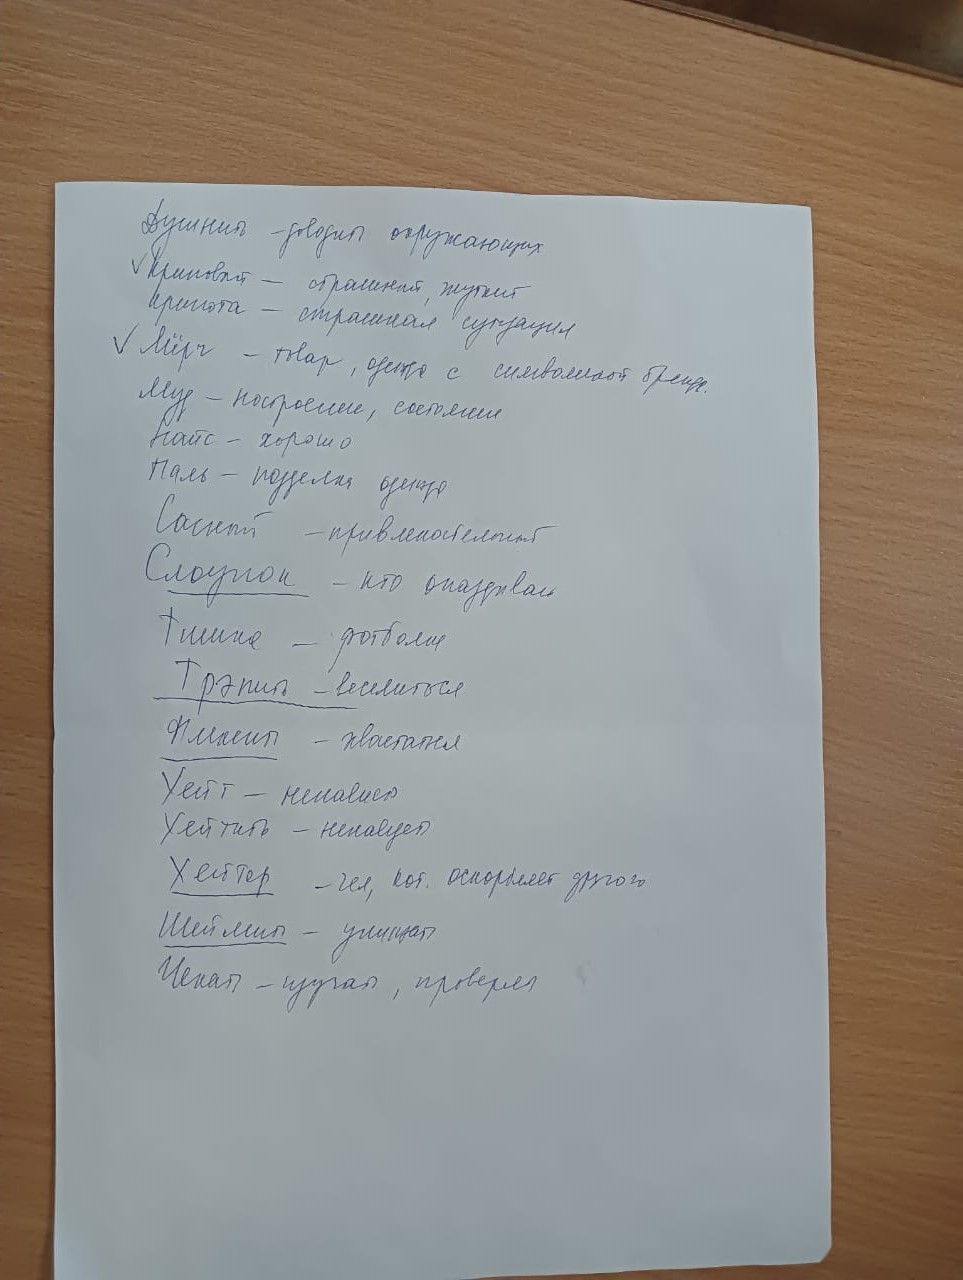 Душнить - доводить окружающих
✓ Криповый - страшный, жуткий
Крипота - страшная ситуация
✓ Мёрч - товар, одежда с символикой бренда.
Муд - настроение, состояние
Найс - хорошо
Паль - подделка одежда
Сасный - привлекательный
Слоупок - кто опаздывает
Тишка - футболка
Трэпить - веселиться
Флексить - хвастаться
Хейт - ненависть
Хейтить - ненавидеть
Хейтер - чел, кот. оскорбляет другого
Шеймить - унижать
Чекать - изучать, проверять